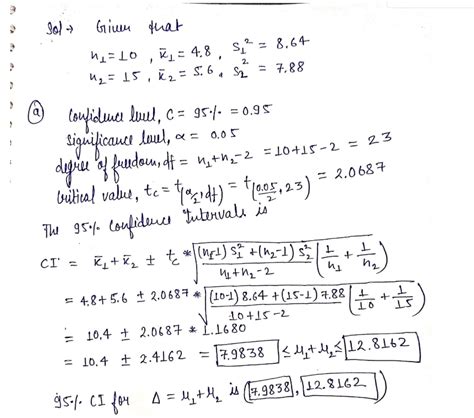 Sol → Given that
n₁=10 , x̄₁ = 4.8, S₁² = 8.64
n₂ = 15, x̄₂ = 5.6, S₂² = 7.88
(a) Confidence level, C = 95% = 0.95
Significance level, α = 0.05
degree of freedom, df = n₁+n₂-2 = 10+15-2 = 23
Critical value, t_c = t(α/2, df) = t(0.05/2, 23) = 2.0687
The 95% Confidence Intervals is
CI = x̄₁ + x̄₂ ± t_c * √((n₁-1) S₁² + (n₂-1) S₂² / n₁+n₂-2 (1/n₁ + 1/n₂))
= 4.8 + 5.6 ± 2.0687 * √((10-1) 8.64 + (15-1) 7.88 / 10+15-2 (1/10 + 1/15))
= 10.4 ± 2.0687 * 1.1680
= 10.4 ± 2.4162 = 7.9838 ≤ μ₁+μ₂ ≤ 12.8162
95% CI for Δ = μ₁+μ₂ is (7.9838, 12.8162)